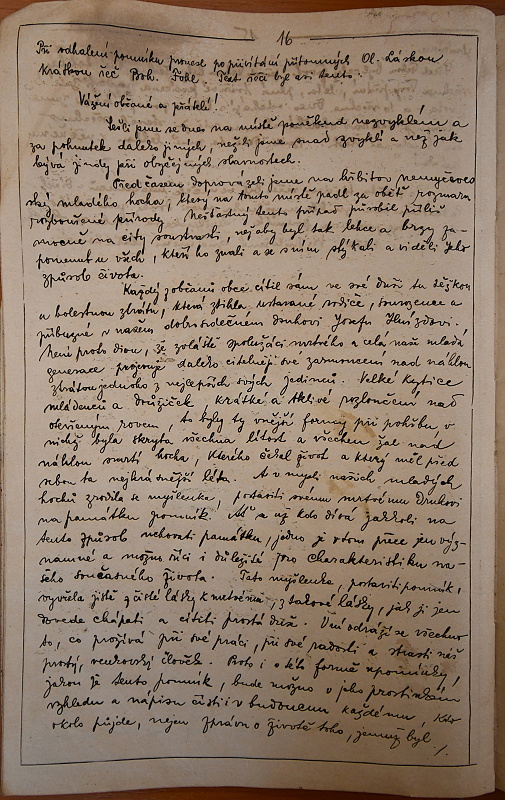 16
Při odhalení pomníku pronesl po přivítání přítomných Ol. Láskou
krátkou řeč Boh. Fohl. Text řeči byl asi tento:
Vážení občané a přátelé!
Sešli jsme se dnes na místě poněkud nezvyklém a
za pohnutek daleko jiných, nežli jsme snad zvyklí a než jak
bývá jindy při obyčejných slavnostech.
Před časem doprovázeli jsme na hřbitov
ský mladého hocha, který na tomto místě padl za oběť rozmaru
rozbouřené přírody. Nešťastný tento případ působil příliš
mocně na city soustrasti, nežaby byl tak lehce a brzy za-
pomenut u všech, kteří ho znali a se s ním stýkali a viděli jeho
způsob života.
Každý z občanů obce cítil sám ve své duši tu těžkou
a bolestnou ztrátu, která stihla ustarané rodiče, sourozence a
příbuzné v našem dobrosrdečném druhovi Josefu
Není proto divu, že zvláště spolužáci mrtvého a celá naše mladá
generace projevuje daleko citelněji své zarmoucení nad náhlou
ztrátou jednoho z nejlepších svých jedinců. Velké kytice
mládenců a družiček, krátké a tklivé rozloučení nad
otevřeným rovem, to byly ty vnější formy při pohřbu v
nichž byla skryta všechna lítost a všechen žal nad
náhlou smrtí hocha, kterého čekal život a který měl před
sebou ta nejkrásnější léta. A v mysli našich mladých
hochů zrodila se myšlenka, postaviti svému mrtvému druhovi
na památku pomník. Ať se už kdo dívá jakkoli na
tento způsob uchovati památku, jedno je v tom přece jen výz-
namné a možno říci i důležité pro charakteristiku na-
šeho současného života. Tato myšlenka, postaviti pomník,
vyvěrá jistě z čisté lásky k mrtvému, z takové lásky, jak ji jen
dovede chápati a cítiti prostá duše. V ní odráží se všechno
to, co prožívá při své práci, při své radosti a strasti náš
prostý, venkovský člověk. Proto i o této formě vzpomínky,
jakou je tento pomník, bude možno v jeho prostinkém
vzhledu a nápisu čísti i v budoucnu každému, kdo
okolo půjde, nejen zprávu o životě toho, jemuž byl
./.